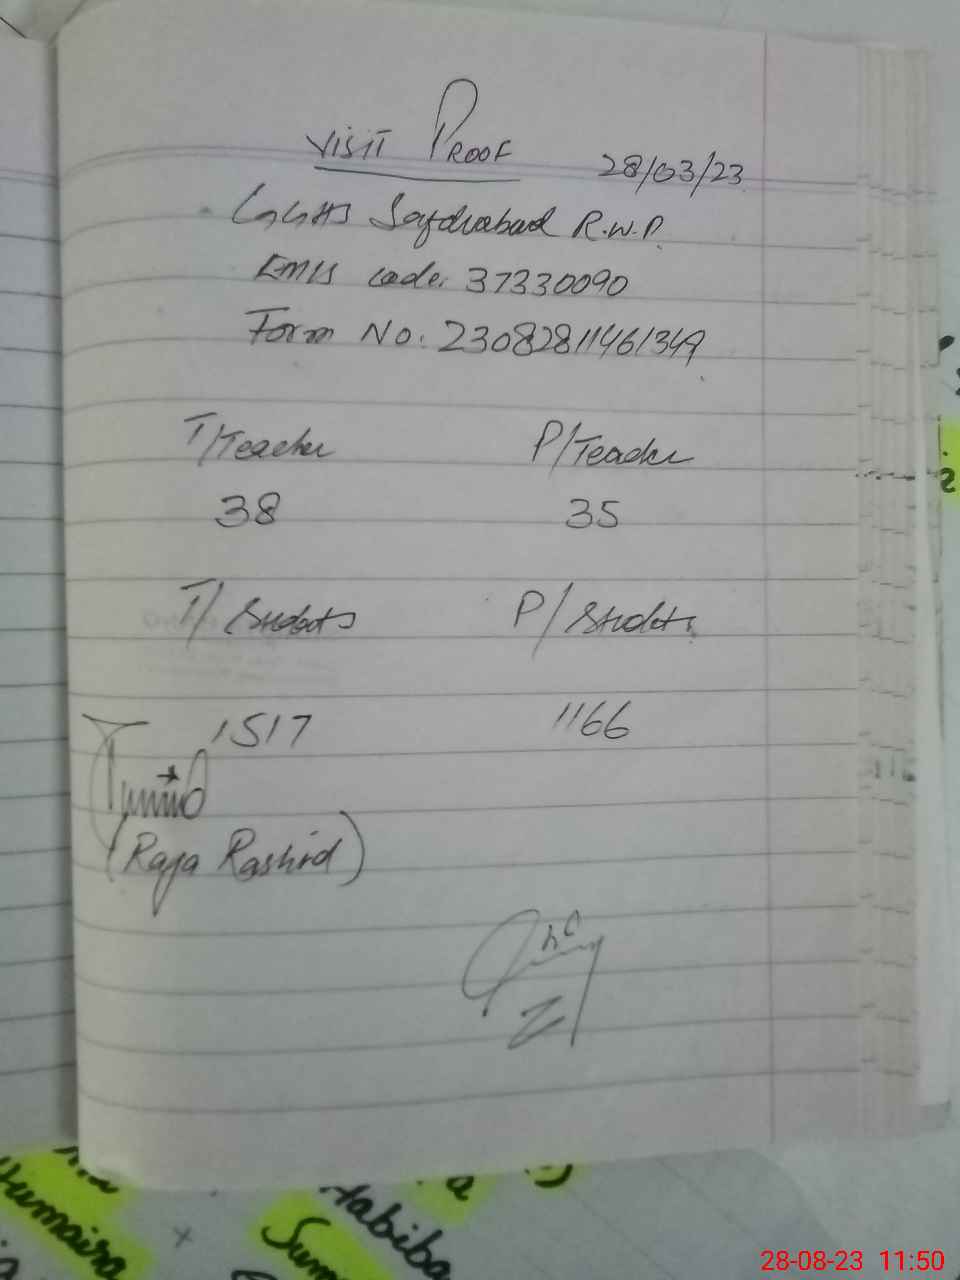 VISIT PROOF 28/03/23
GGHS Saydrabad R.W.P.
EMIS code. 37330090
Form No. 23082811461349
T/Teacher P/Teacher
38 35
T/Students P/Students
1517 1166
(Raja Rashid)
Humaira
Habiba
28-08-23 11:50